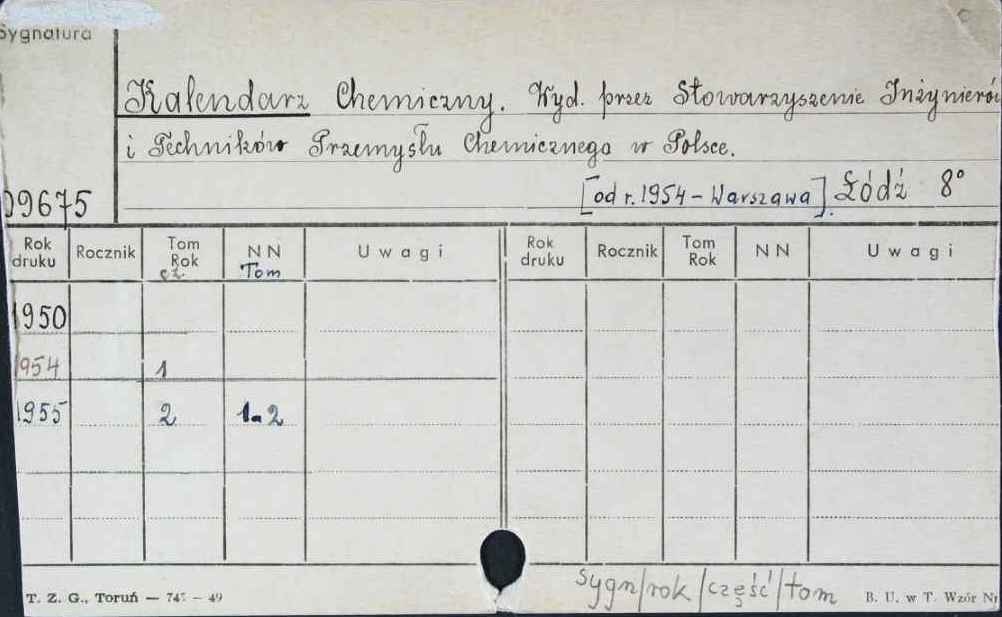 Sygnatura
Kalendarz Chemiczny. Wyd. przez Stowarzyszenie Inżynierów
i Techników Przemysłu Chemicznego w Polsce.
09675 [od r. 1954 – Warszawa]. Łódź 8°
Rok druku Rocznik Tom Rok cz. NN Tom Uwagi Rok druku Rocznik Tom Rok NN Uwagi
1950
1954 1
1955 2 1-2
Sygn/rok/część/tom
T. Z. G., Toruń — 747 — 49 B. U. w T. Wzór Nr